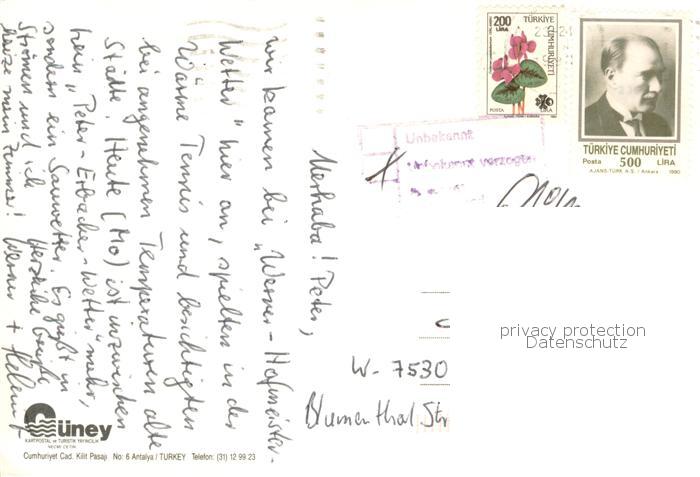 Merhaba! Peter,
wir kamen bei „Werner-Hofmeister-
Wetter" hier an, spielten in der
Wärme Tennis und besichtigten
bei angenehmen Temperaturen alte
Städte. Heute (Mo) ist inzwischen
kein „Peter-Erbacher-Wetter" mehr,
sondern ein Sauwetter. Es gießt in
Strömen und ich
heize mein Zimmer!
Herzliche Grüße
Werner + Helena
200
LİRA
TÜRKİYE CUMHURİYETİ
POSTA
LİRA
TÜRKİYE CUMHURİYETİ
Posta 500 LİRA
AJANS-TÜRK A.Ş. / Ankara 1990
Unbekannt
Unbekannt verzogen
privacy protection
Datenschutz
W-7530
Blumenthal Str
Güney
KARTPOSTAL ve TURİSTİK YAYINCILIK
NECMİ ÇETİN
Cumhuriyet Cad. Kilit Pasajı No: 6 Antalya / TURKEY Telefon: (31) 12 99 23